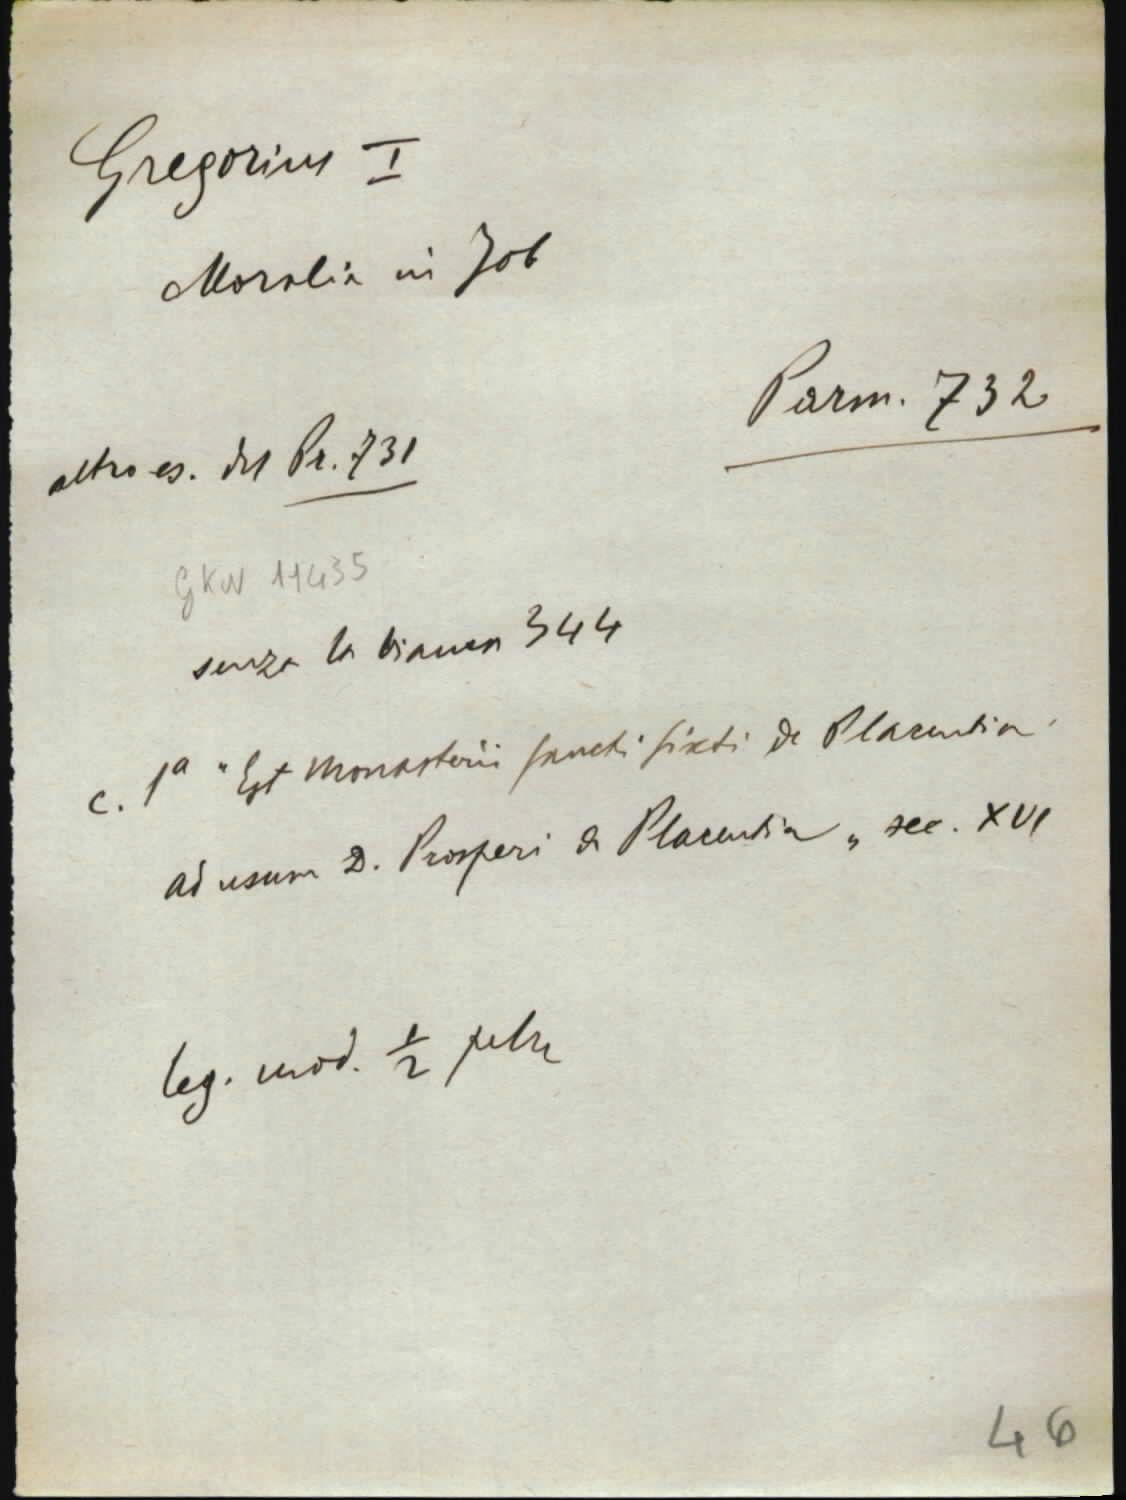 Gregorius I
Moralia in Job
Parm. 732
altro es. del Pr. 731
GKW 11435
senza la bianca 344
c. 1ª "Est Monasterii sancti sixti de Placentia
ad usum D. Prosperi de Placentia„ sec. XVI
leg. mod. ½ pelle
46